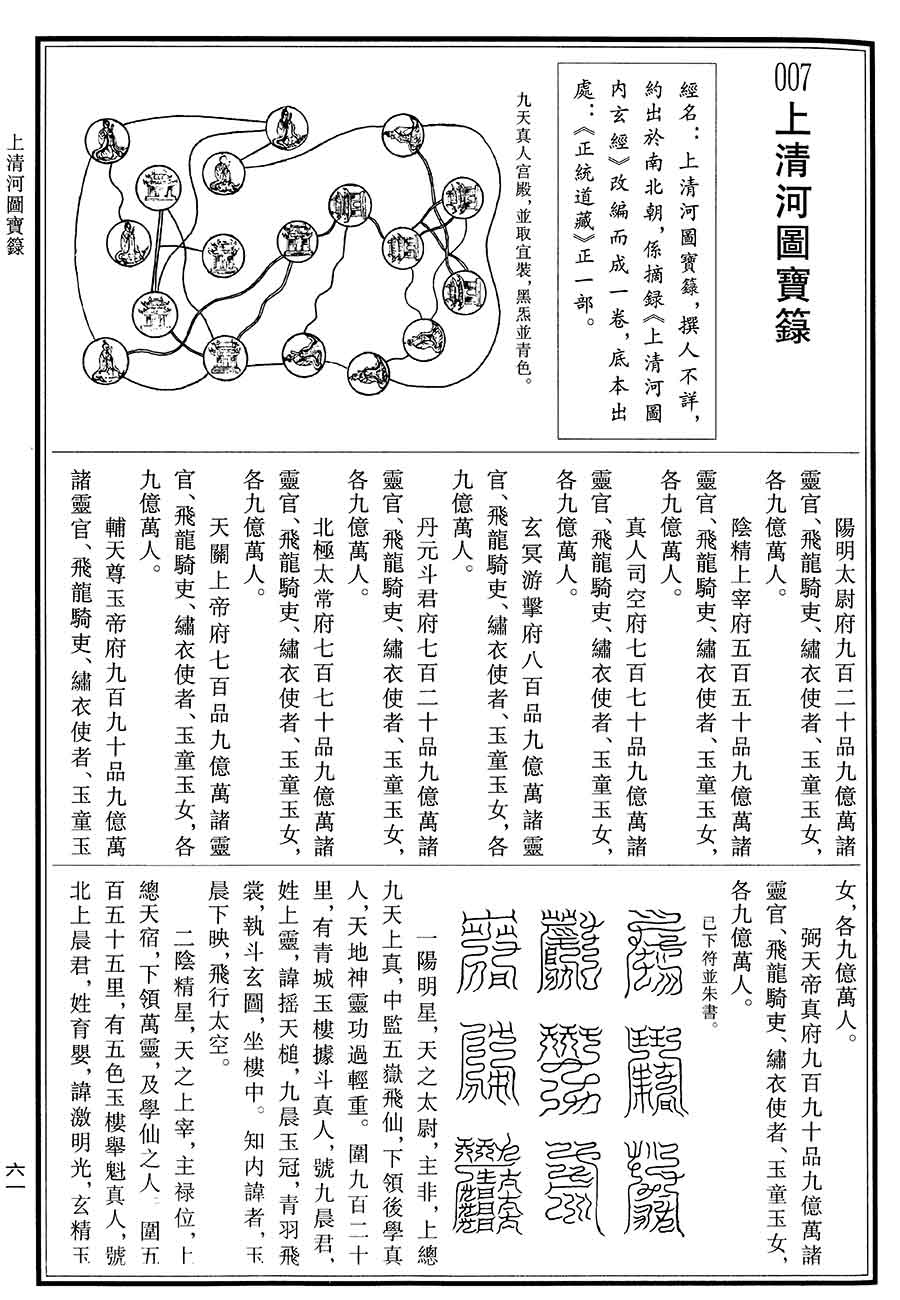 007
上清河圖寶籙
經名：上清河圖寶籙，撰人不詳，
約出於南北朝，係摘録《上清河圖
内玄經》改編而成一卷，底本出
處：《正統道藏》正一部。
九天真人宫殿，並取宜裝，黑炁並青色。
陽明太尉府九百二十品九億萬諸
靈官、飛龍騎吏、繡衣使者、玉童玉女，
各九億萬人。
陰精上宰府五百五十品九億萬諸
靈官、飛龍騎吏、繡衣使者、玉童玉女，
各九億萬人。
真人司空府七百七十品九億萬諸
靈官、飛龍騎吏、繡衣使者、玉童玉女，
各九億萬人。
玄冥游擊府八百品九億萬諸靈
官、飛龍騎吏、繡衣使者、玉童玉女，各
九億萬人。
丹元斗君府七百二十品九億萬諸
靈官、飛龍騎吏、繡衣使者、玉童玉女，
各九億萬人。
北極太常府七百七十品九億萬諸
靈官、飛龍騎吏、繡衣使者、玉童玉女，
各九億萬人。
天關上帝府七百品九億萬諸靈
官、飛龍騎吏、繡衣使者、玉童玉女，各
九億萬人。
輔天尊玉帝府九百九十品九億萬
諸靈官、飛龍騎吏、繡衣使者、玉童玉
女，各九億萬人。
弼天帝真府九百九十品九億萬諸
靈官、飛龍騎吏、繡衣使者、玉童玉女，
各九億萬人。
已下符並朱書。
一陽明星，天之太尉，主非，上總
九天上真，中監五嶽飛仙，下領後學真
人，天地神靈功過輕重。圍九百二十
里，有青城玉樓據斗真人，號九晨君，
姓上靈，諱摇天槌，九晨玉冠，青羽飛
裳，執斗玄圖，坐樓中。知内諱者，玉
晨下映，飛行太空。
二陰精星，天之上宰，主禄位，上
總天宿，下領萬靈，及學仙之人。圍五
百五十五里，有五色玉樓舉魁真人，號
北上晨君，姓育嬰，諱激明光，玄精玉
上清河圖寶籙
六一